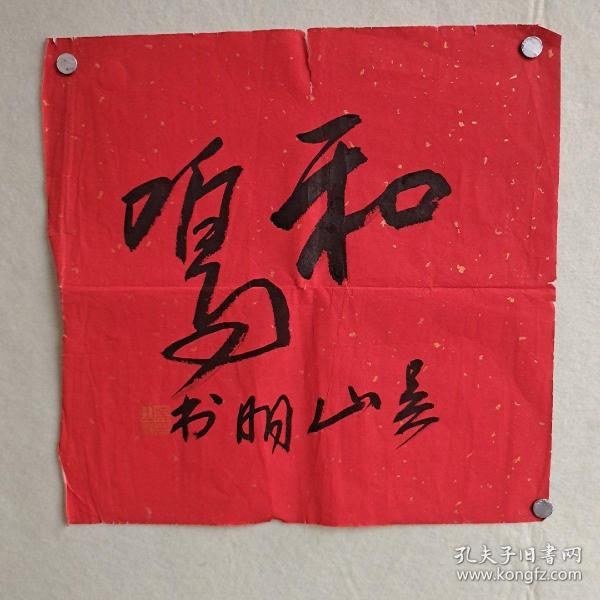 和鸣
吴山明书
孔夫子旧书网
www.kongfz.com